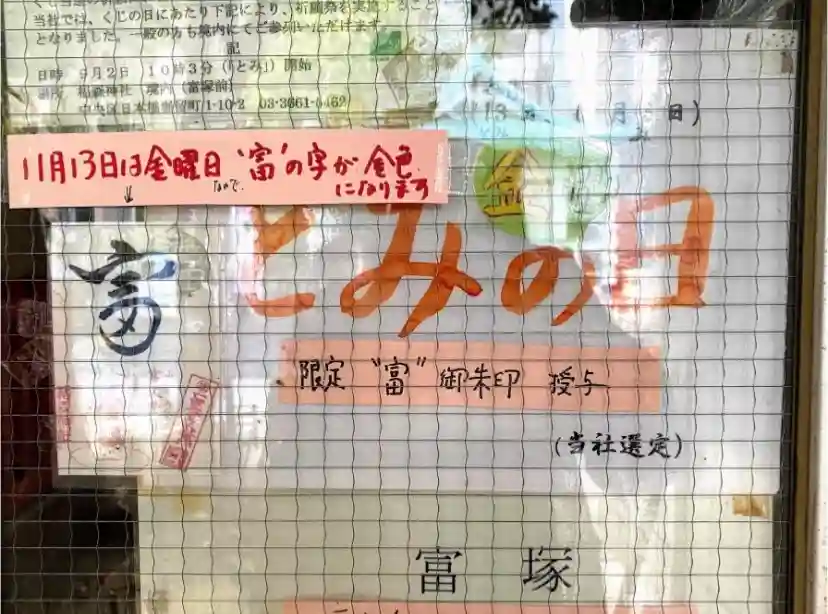 当社では、くじの日にあたり下記により、祈願祭を実施すること
となりました。一般の方も境内にてご参列いただけます。
記
日時 9月2日 10時3分(「とみ」)開始
場所 椙森神社 境内(富塚前)
中央区日本橋堀留町1-10-2 03-3661-5462
11月13日は金曜日なので、“富”の字が金色になります
富
とみの日
限定“富”御朱印 授与
(当社選定)
富塚